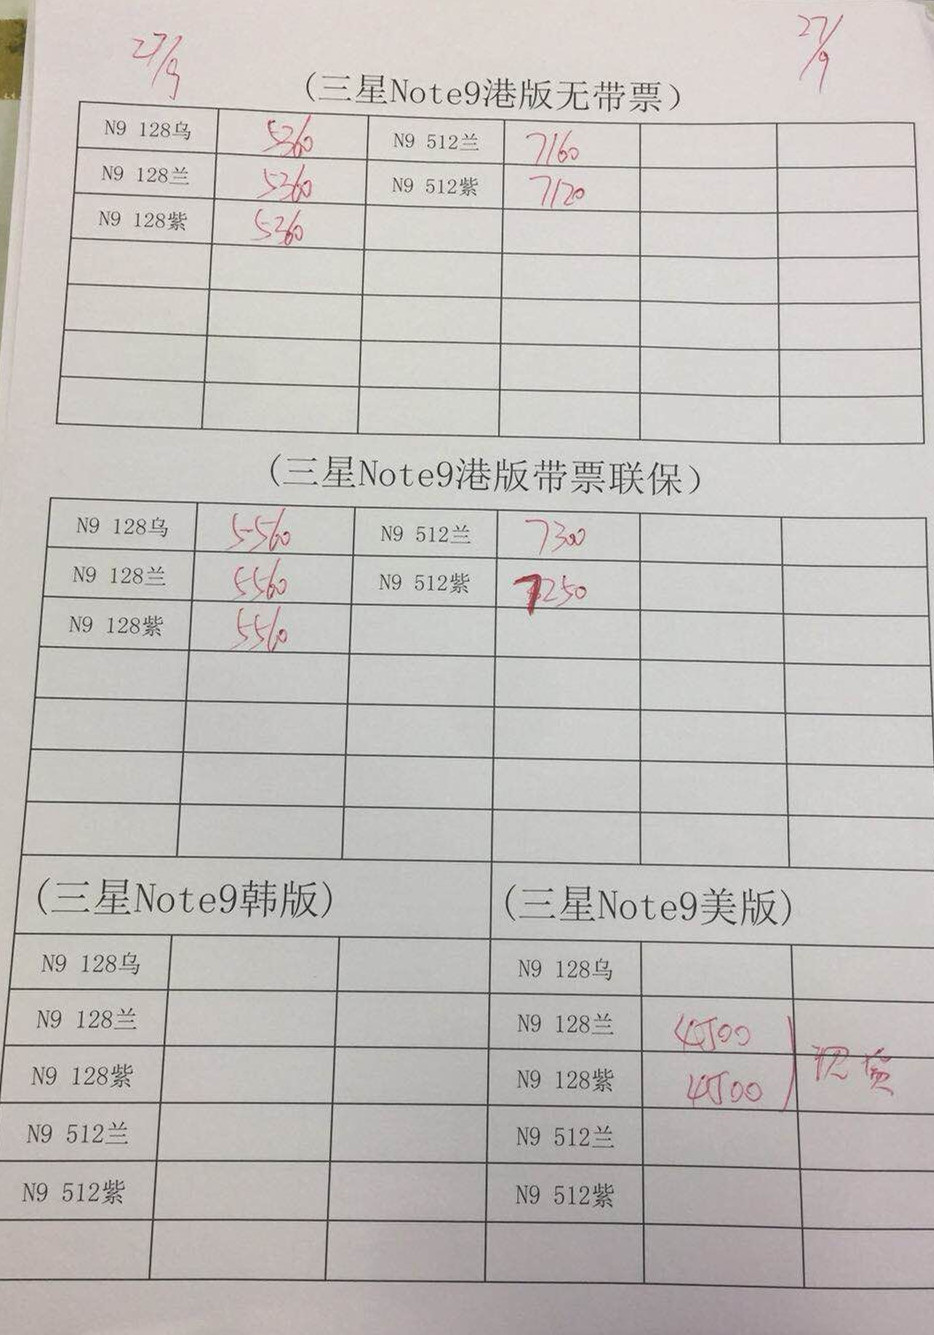 27/9
27/9
(三星Note9港版无带票)
N9 128乌 5360 N9 512兰 7160
N9 128兰 5360 N9 512紫 7120
N9 128紫 5360
(三星Note9港版带票联保)
N9 128乌 5560 N9 512兰 7300
N9 128兰 5560 N9 512紫 7250
N9 128紫 5560
(三星Note9韩版)
N9 128乌
N9 128兰
N9 128紫
N9 512兰
N9 512紫
(三星Note9美版)
N9 128乌
N9 128兰 4500
N9 128紫 4500
现货
N9 512兰
N9 512紫